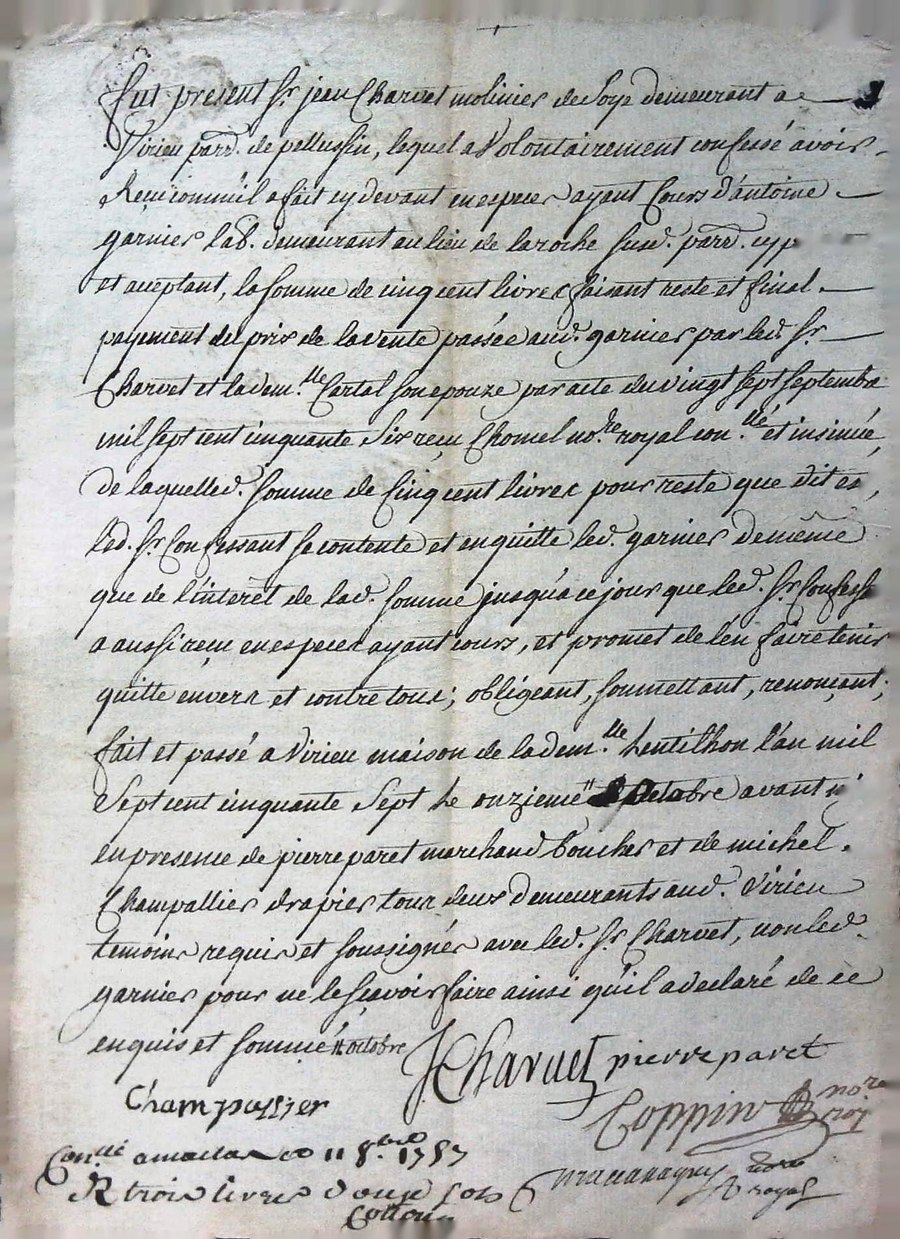 fut present Sr. jean Charvet molinier de soye demeurant a
Virieu parr. de pellussin, lequel a Volontairement confessé avoir
Reçu comm'il a fait cy devant en especes ayant Cours d'antoine
garnier lab. demeurant au lieu de laroche susd. parr. cy p
et aceptant, la somme de cinq cent livres faisant reste et final
payement du prix de la vente passée aud. garnier par led. Sr.
Charvet et lad dem.lle Cartal son epouze par acte du vingt sept septembre
mil sept cent cinquante Six reçu Chomel no.re royal con.llé et insinué,
de laquelled. somme de Cinq cent livres pour reste que dit es,
led. Sr. Confessant se contente et en quitte led. garnier de même
que de l'interêt de lad. somme jusqu'a ce jour que led. Sr. Confess
a aussi reçu en especes ayant cours, et promet de l'en faire tenir
quitte envers et contre tous; obligeant, soumettant, renonçant;
fait et passé a Virieu maison de lad dem.lle hentilhon l'an mil
Sept cent cinquante Sept le onzieme " octobre avant
en presence de pierre paret marchand Boucher et de michel
Champallier drapier tour deux demeurants aud. Virieu
temoins requis et soussignés avec led. Sr. Charvet, non led.
garnier pour ne le sçavoir faire ainsi qu'il a declaré de ce
enquis et sommé " octobre
JCharvet pierre paret
Champallier
Coppin no.re roy
Con.llé a maclas ce 11 8.bre 1757
R trois livres douze sols
royal